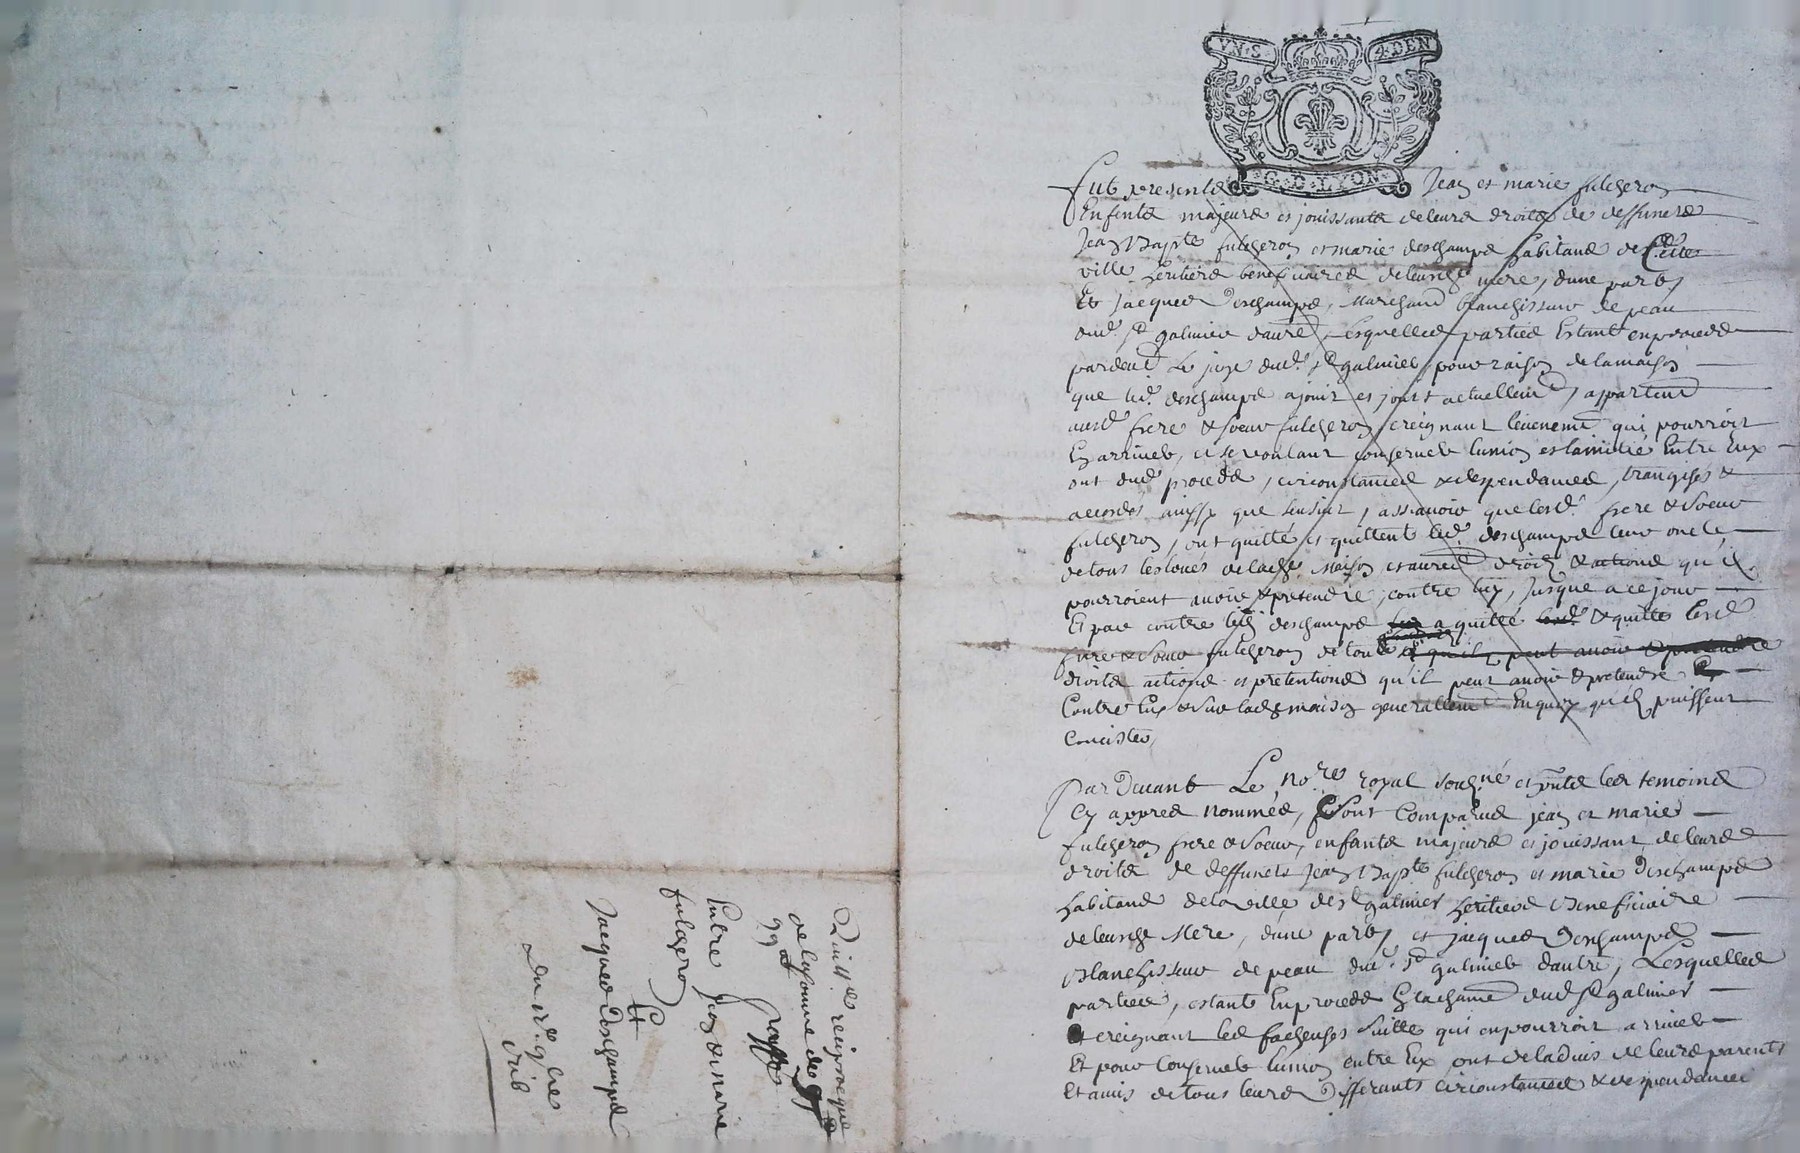 VN·S· 4·DEN
·G·D·LYON·
Fut presentd Jean et marie fulcheron
Enfentd majeurd et jouissantd de leurd droitd de deffunctd
Jean Bapte fulcheron et marie deschampd habitand de Cette
ville heritierd beneficiaired de leurde mere, dune part,
Et Jacqued deschampd, Marchand blanchisseur de peau
dud. St galmier dautre, lesquelled partied Estant en proceds
pardevt Le juge dud. St galmier, pour raison de la maison
que led. deschampd a jouit et jouit actuellemt, appartent
ausd. frere & soeur fulcheron, creignant levenemt qui pourroit
En arriver, et se voulant conserver lunion et lamitié Entre Eux
ont dud. proceds, circonstanced & dependanced, transigés &
accordés ainssy que sensuit, assavoir que lesd. frere & soeur
fulcheron, ont quitté et quittent led. deschampd leur oncle
de tous les loués de lade. Maison et autred droitd & actiond qu'il
pourroient avoir & pretendre, contre luy, Jusque a ce jour
Et par contre led. deschampd a quitté & quitte lesd.
frere & soeur fulcheron de tous qu'il peut avoir & pretendre
droitd actiond et pretentiond qu'il peut avoir & pretendre
Contre Eux & sur lade maison generallemt En quoy qu'il puissent
Concister,
Par Devant Le nore royal soussné et pntd led temoind
Cy appred nommés, sont Comparud jean et marie
fulcheron frere & soeur, enfantd majeurd et jouissant de leurd
droitd de deffuncts Jean Bapte fulcheron et marie Deschampd
habitand de la ville de St galmier heritierd Beneficiaire
de leurde Mere, dune part, et jacqued Deschampd
Blanchisseur de peau dud. St galmier dautre, Lesquelled
partied, estantd En proceds En la chamd dud St galmier
creignant led facheuses suitte qui en pourroit arriver
Et pour Conserver lunion entre Eux ont de ladvis de leurd parents
Et amis de tous leurd differants circonstanced & dependanced
Quittce reciproque
de la somme de
99
Entre Jean & marie
fulcheron
Et
Jacqued Deschampd